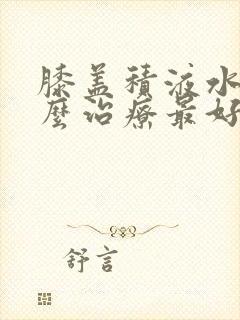 膝盖積液水
麼治療最好
舒言